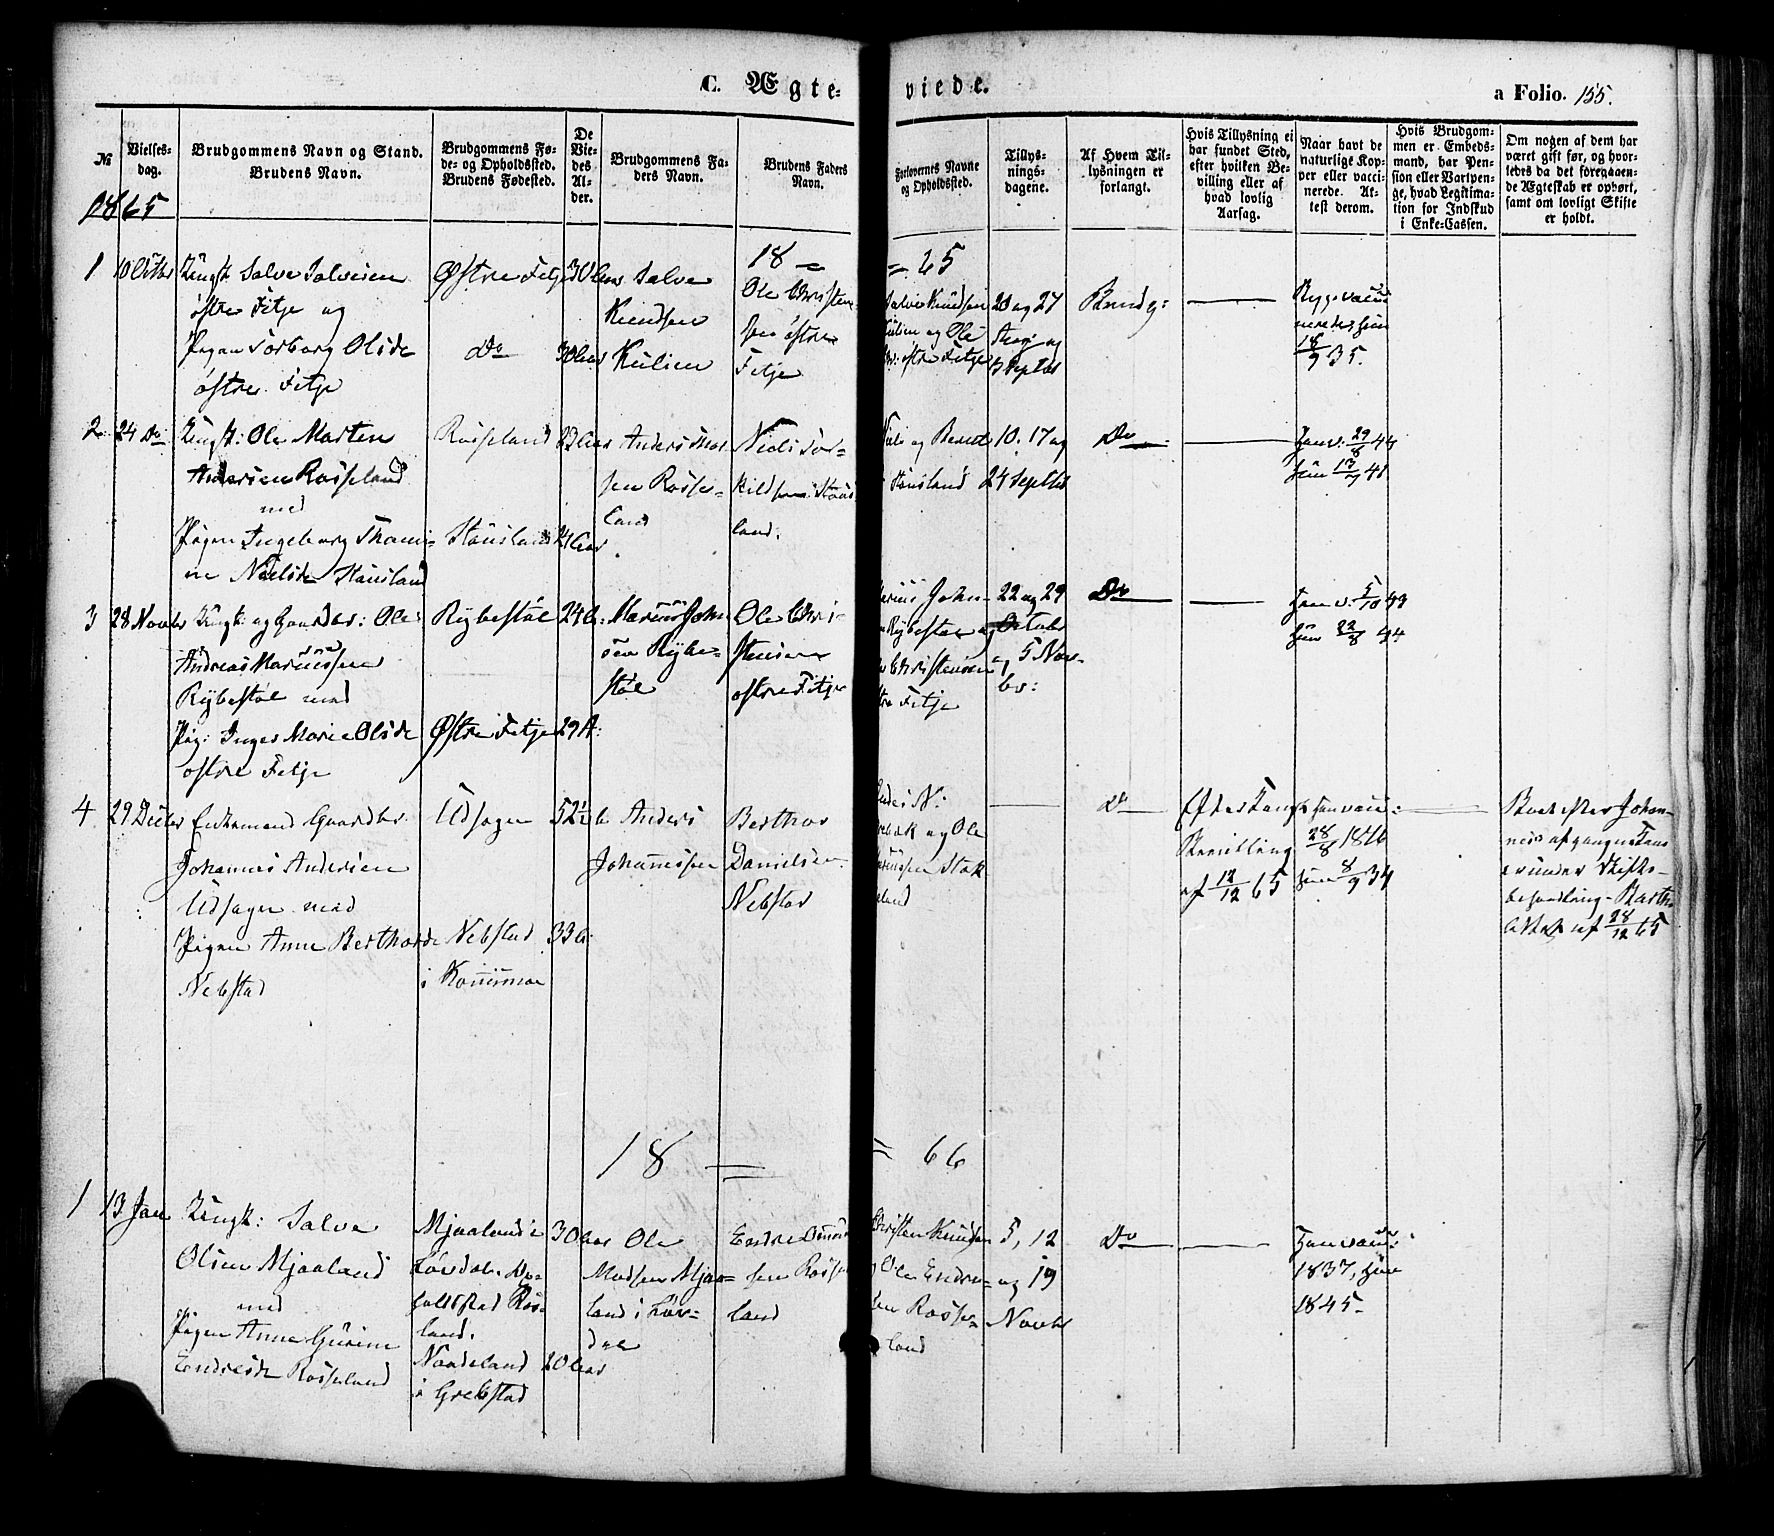 C. Ægteviede.
a Folio. 155.
No
Vielses-
dag.
Brudgommens Navn og Stand.
Brudens Navn.
Brudgommens Fø-
de- og Opholdssted.
Brudens Fødested.
De
Vie-
des
Al-
der.
Brudgommens Fa-
ders Navn.
Brudens Faders
Navn.
Forlovernes Navne
og Opholdssted.
Tillys-
nings-
dagene.
Af Hvem Til-
lysningen er
forlangt.
Hvis Tillysning ei
har fundet Sted,
efter hvilken Be-
villing eller af
hvad lovlig
Aarsag.
Naar havt de
naturlige Kop-
per eller vacci-
nerede. At-
test derom.
Hvis Brudgom-
men er Embeds-
mand, har Pen-
sion eller Vartpen-
ge, hvad Legitima-
tion for Indskud
i Enke-Cassen.
Om nogen af dem har
været gift før, og hvor-
ledes da det foregaaen-
de Ægteskab er ophørt,
samt om lovligt Skifte
er holdt.
1865
18 = = 65
1
10 Octbr
Ungk. Salve Salvesen
østre Fitje og
Pigen Torborg Olsdr
østre Fitje
Østre Fitje
Do
30 aar
30 aar
Salve
Knudsen
Kulien
Ole Christen-
sen østre
Fitje
Salve Knudsen
Kulien og Ole
østre Fitje
20 og 27
og
3 Septbr
Brudg:
hun
18/9 35.
2
24 Do
Ungk: Ole Marten
Andersen Rosseland
med
Pigen Ingeborg Thomi-
ne Nielsdr Stausland
Rosseland
Stausland
23 aar
21 aar
Anders
sen Rosse-
land
Niels Tor-
kildsen Staus
land.
Niels og Berent
Stausland
10. 17 og
24 Septbr
Do
han v. 29/8 44
hun 13/9 48
3
28 Novbr
Ungk: og Gaardbr: Ole
Andreas Mariussen
Rybestøl med
Pig: Inger Marie Olsdr
østre Fitje
Rybestøl
Østre Fitje
24 A:
29 A:
Marius John
sen Rybe-
støl
Ole Chri-
stensen
østre Fitje
Marius John-
Rybestøl og
Christensen
østre Fitje
22 og 29
Octobr
og 5 Nov-
br:
Do
han v. 5/10 43
hun 22/8 44
4
29 Decbr
Enkemand Gaardbr.
Johannes Andersen
Udjager med
Pigen Anne Berthordr
Nebstad
Udjager
Nebstad
i
52 1/2 a
33 a:
Anders
Johannessen
Berthor
Danielsen
Nebstad
Anders N:
og Ole
Mariussen Stok
land
Do
Efter Kongl.
Bevilling
af 12/12 65
han vacc:
28/8 1816
hun 8/9 34
Boet efter Johan-
nes's afgangne Kone
er under Skifte-
behandling
af 28/12 65
18 = = 66
1
13 Jan
Ungk: Salve
Olsen Mjaaland
med
Pigen Anne Gurine
Endresdr Rosseland
Mjaaland i
Løvdal. Op-
holdssted Ros-
land.
Nordeland
i Grebstad
30 aar
20 aar
Ole
Madsen Mjaa-
land i Løv-
dal
Endre
sen Rosse
land
Christen Knudsen
og Ole Endre-
sen Rosse-
land
5, 12
og 19
Novbr
Do
han vacc:
1837, hun
1845.